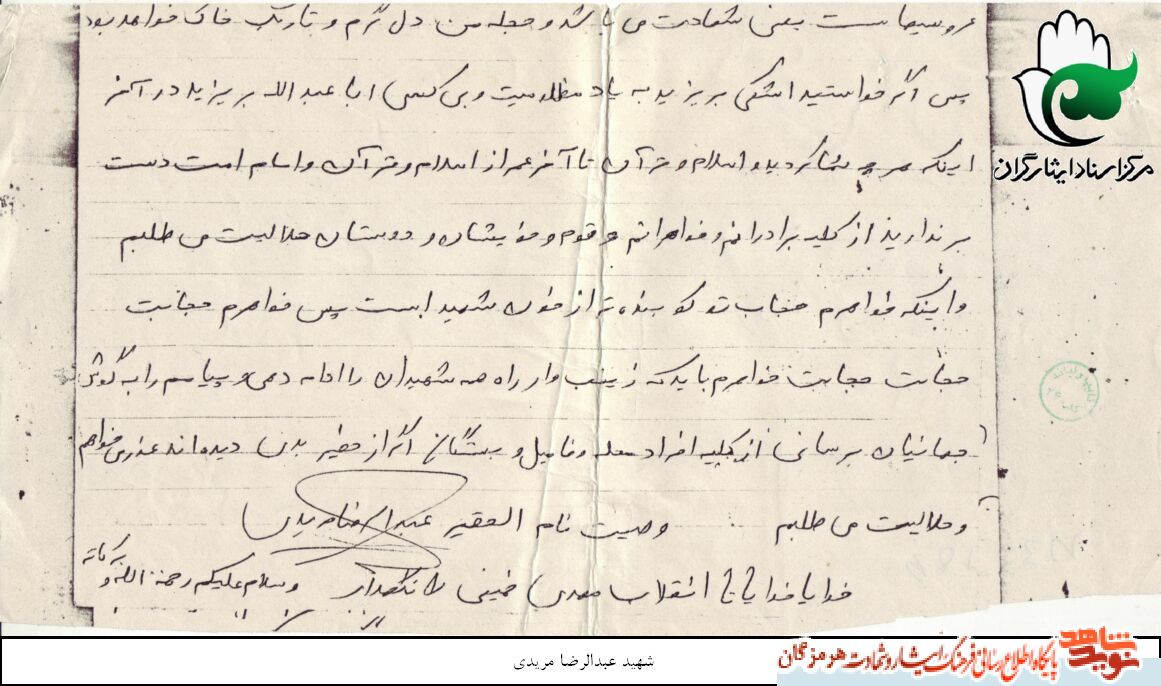 عروسیماست یعنی شهادت می باشد و حجله من دل گرم و تاریک خاک خواهد بود
پس اگر خواستید اشکی بریزید به یاد مظلومیت و بی کسی ابا عبدالله بریزید در آخر
اینکه عمر شما گردید و اسلام و قرآن تا آخر عمر از اسلام و قرآن و امام امت دست
بر ندارید از کلیه برادرانم و خواهرانم و قوم و خویشان و دوستان حلالیت می طلبم
و اینکه خواهرم حجاب تو کوبنده تر از خون شهید است پس خواهرم حجابت
حجابت حجابت خواهرم باید که زینب وار راه همه شهیدان را ادامه دهی و پیامم را به گوش
جهانیان برسانی از کلیه افراد محله و فامیل و بستگانم اگر از حقیر بدی دیده اند عذر می خواهم
و حلالیت می طلبم وصیت نام الحقیر عبدالرضا مریدی
خدایا خدایا تا انقلاب مهدی خمینی را نگهدار وسلام علیکم رحمة الله و برکاته
مرکز اسناد ایثارگران
شهید عبدالرضا مریدی
نوید شاهد
پایگاه اطلاع رسانی فرهنگ ایثار و شهادت هرمزگان